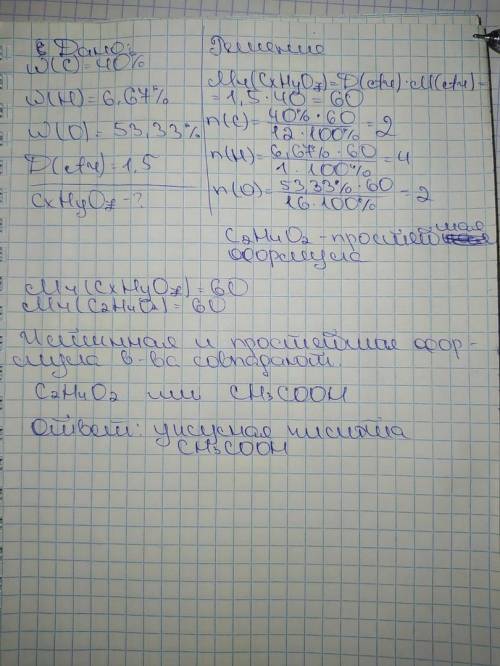 Дано:
W(C)=40%
W(H)=6,67%
W(O)=53,33%
D(Ar)=1,5
CxHyOz-?
Решение
Mr(CxHyOz)=D(Ar)·M(Ar)=
=1,5·40=60
n(C)=40%·60/12·100%=2
n(H)=6,67%·60/1·100%=4
n(O)=53,33%·60/16·100%=2
C2H4O2-простейшая
формула
Mr(CxHyOz)=60
Mr(C2H4O2)=60
Истинная и простейшая фор-
мула в-ва совпадают.
C2H4O2 или CH3COOH
Ответ: уксусная кислота
CH3COOH